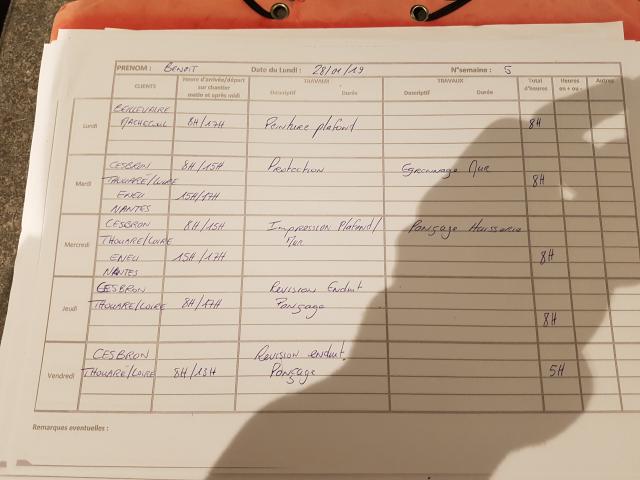 PRENOM : BENOIT Date du Lundi : 28/01/19 N°semaine : 5
CLIENTS Heure d'arrivée/départ sur chantier matin et après midi TRAVAUX Descriptif Durée TRAVAUX Descriptif Durée Total d'heures Heures en + ou - Autres
Lundi
BELLEVAIRE
MACHECOUL 8H/17H Peinture plafond 8H
Mardi
CESBRON 8H/15H Protection Egrennage Mur
THOUARÉ/LOIRE 8H
ENEU 15H/17H
NANTES
Mercredi
CESBRON 8H/15H Impression Plafond/ Ponçage Huisserie
THOUARÉ/LOIRE Mur
ENEU 15H/17H 8H
NANTES
Jeudi
CESBRON Revision Enduit
THOUARÉ/LOIRE 8H/17H Ponçage
8H
Vendredi
CESBRON Revision enduit
THOUARÉ/LOIRE 8H/13H Ponçage 5H
Remarques eventuelles :